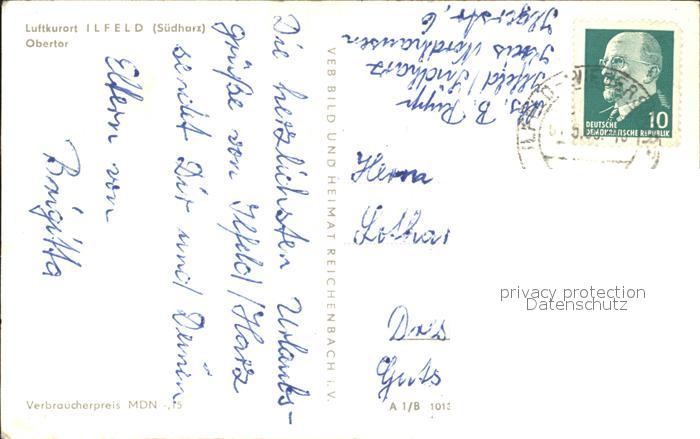 Luftkurort ILFELD (Südharz)
Obertor
Die herzlichsten Urlaubs-
grüße von Ilfeld/Harz
sendet Dir und Deinen
Eltern von
Brigitta
VEB BILD UND HEIMAT REICHENBACH i.V.
B. Rupp
Ilfeld/Südharz
Kreis Nordhausen
Ilgerstr. 6
DEUTSCHE
DEMOKRATISCHE REPUBLIK
10
Herrn
Lothar
Dres
Guts
privacy protection
Datenschutz
Verbraucherpreis MDN -,15
A 1/B 1013